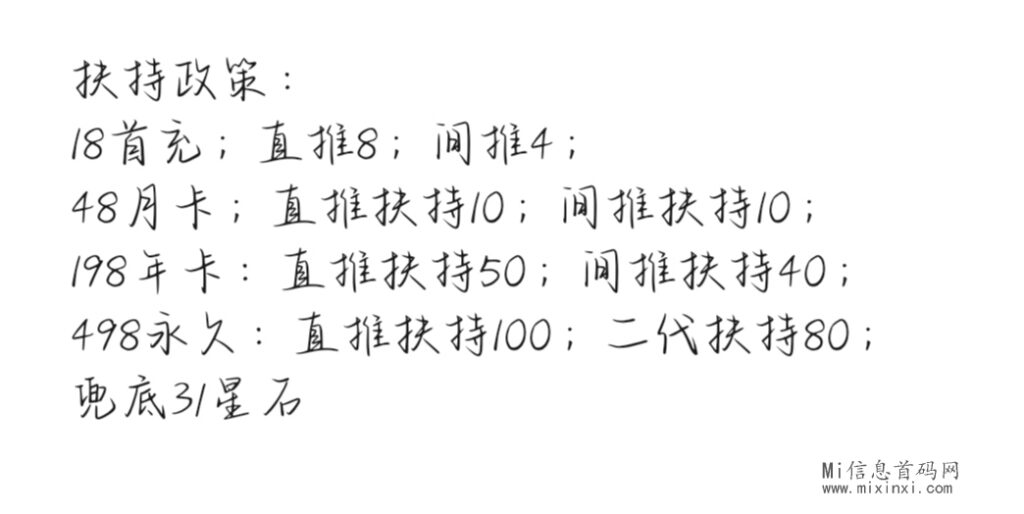 扶持政策：
18首充；直推8；间推4；
48月卡；直推扶持10；间推扶持10；
198年卡：直推扶持50；间推扶持40；
498永久：直推扶持100；二代扶持80；
兜底31星石
Mi信息首码网
www.mixinxi.com